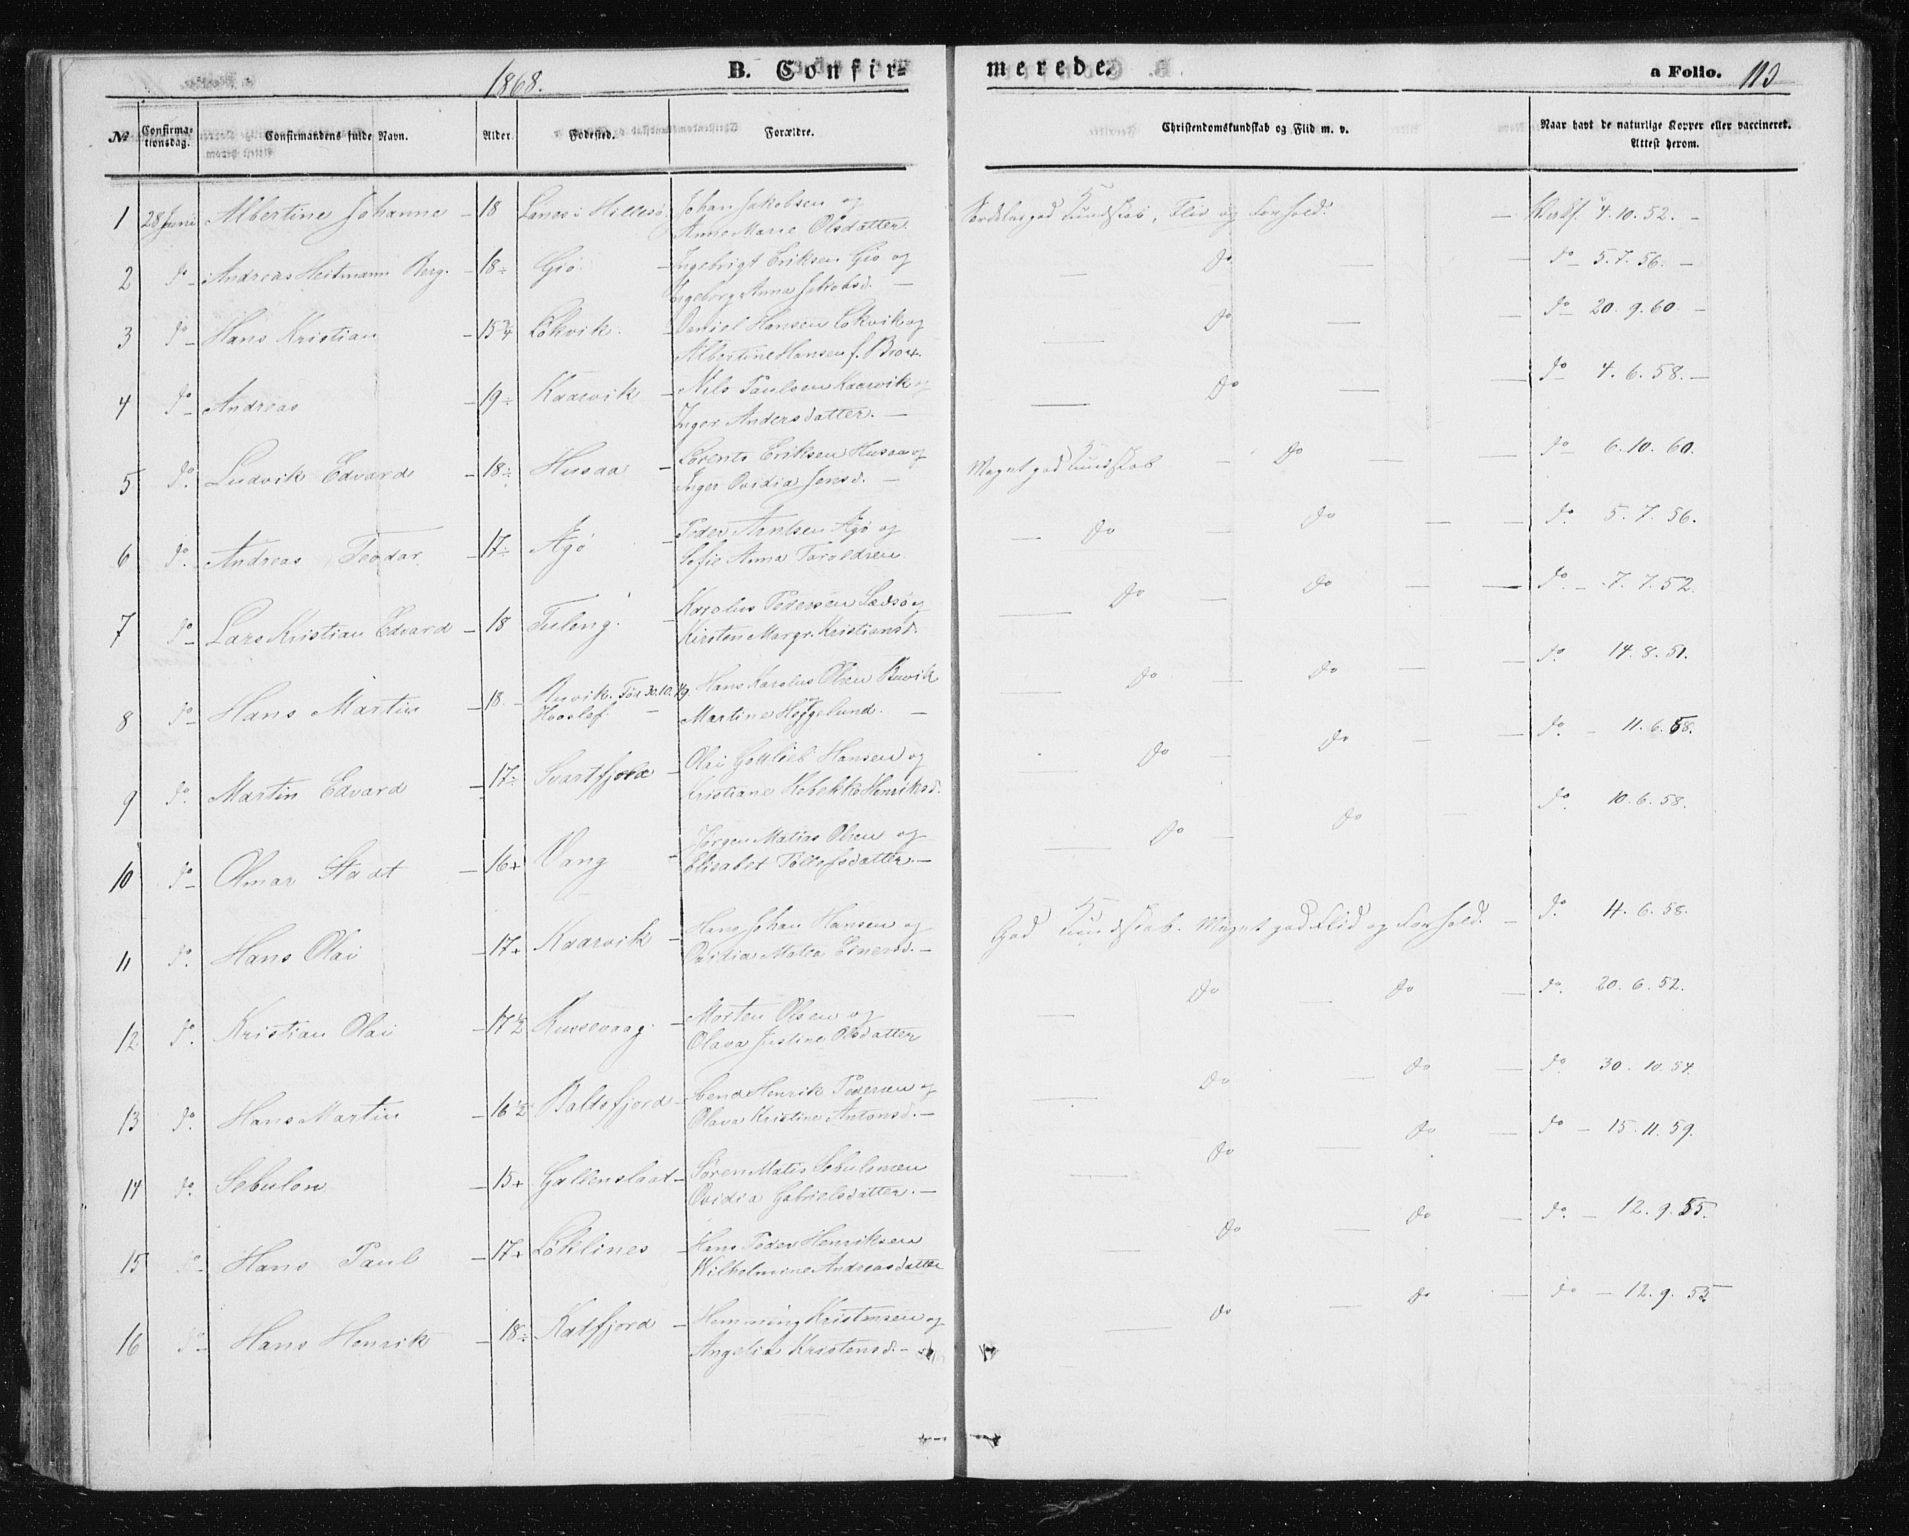 1868.
B. Confirmerede.
a Folio. 113
№ Confirmationsdag. Confirmandens fulde Navn. Alder. Fødested. Forældre. Christendomskundskab og Flid m. v. Naar havt de naturlige Kopper eller vaccineret. Attest herom.
1 28 Juni Albertine Johanne – 18 Hillesø Johan Jakobsen og
Anne Marie Olsdatter
god Kundskab, Flid og Forhold. – 4.10.52. –
2 do Andreas Heitmann Berg. – 18 ÷ Giø – Ingebrigt Eriksen Giø og
Ingeborg Anna Jakobsd. –
— do — – do – 5.7.56. –
3 do Hans Kristian – 15¾ Løkvik. – Daniel Hansen Løkvik og
Albertine Hansen f. Brox.
— do — do – 20.9.60. –
4 do Andreas – 19 ÷ Kaarvik – Nils Paulsen Kaarvik og
Inger Andersdatter. –
— do — do 4.6.58. –
5 do Ludvik Edvard – 18 ÷ Husaa – Lorents Eriksen Husaa og
Inger Ovidia Jensd. –
Meget god Kundskab – do – – do – 6.10.60.
6 do Andreas Teodor – 17 ÷ Agø – Peder Arntsen Agø og
Sofie Anna Taroldsen
– do – do – – do 5.7.56.
7 do Lars Kristian Edvard – 18 Tuleng. – Karolus Pedersen Lødsø og
Kirsten Margr. Kristiansd.
— do – do – – do – 7.7.52.
8 do Hans Martin – 18. – Buvik. Før 30.10.49
Hans Karolus Olsen Buvik
og
Martine Heggelund. –
— do – do – – do 14.8.51.
9 do Martin Edvard – 17 ÷ Svartfjeld – Olai Gottlieb Hansen og
Kristiane Rebekka Henriksd.
— do – do – – do – 11.6.58.
10 do Olmar Stadt – 16+ Vang – Jørgen Matias Olsen og
Elisabet Tollefsdatter. –
— do – do – do 10.6.58.
11 do Hans Olai – 17+ Kaarvik – Hans Johan Hansen og
Ovidia Matea Einersd. –
God Kundskab. Meget god Flid og Forhold. – do 11.6.58.
12 do Kristian Olai – 17½ Russevaag. – Morten Olsen og
Olava Justine Olsdatter
— do — do – do. 20.6.52.
13 do Hans Martin – 16½ Baltsfjord – Svend Henrik Pedersen og
Olava Kristine Antonsd. –
— do — do – do 30.10.54.
14 do Sebulon – 15+ – Søren Matis Sebulonsen
Ovidia Gabrielsdatter. –
— do do – do – 15.11.59.
15 do Hans Paul – 17+ Løklines – Hans Peder Henriksen
Wilhelmine Andreasdatter
— do — do – do – 12.9.55.
16 do Hans Henrik – 18 ÷ Katfjord – Hemming Kristensen og
Angelia Kristensd. –
— do — do – do – 12.9.53